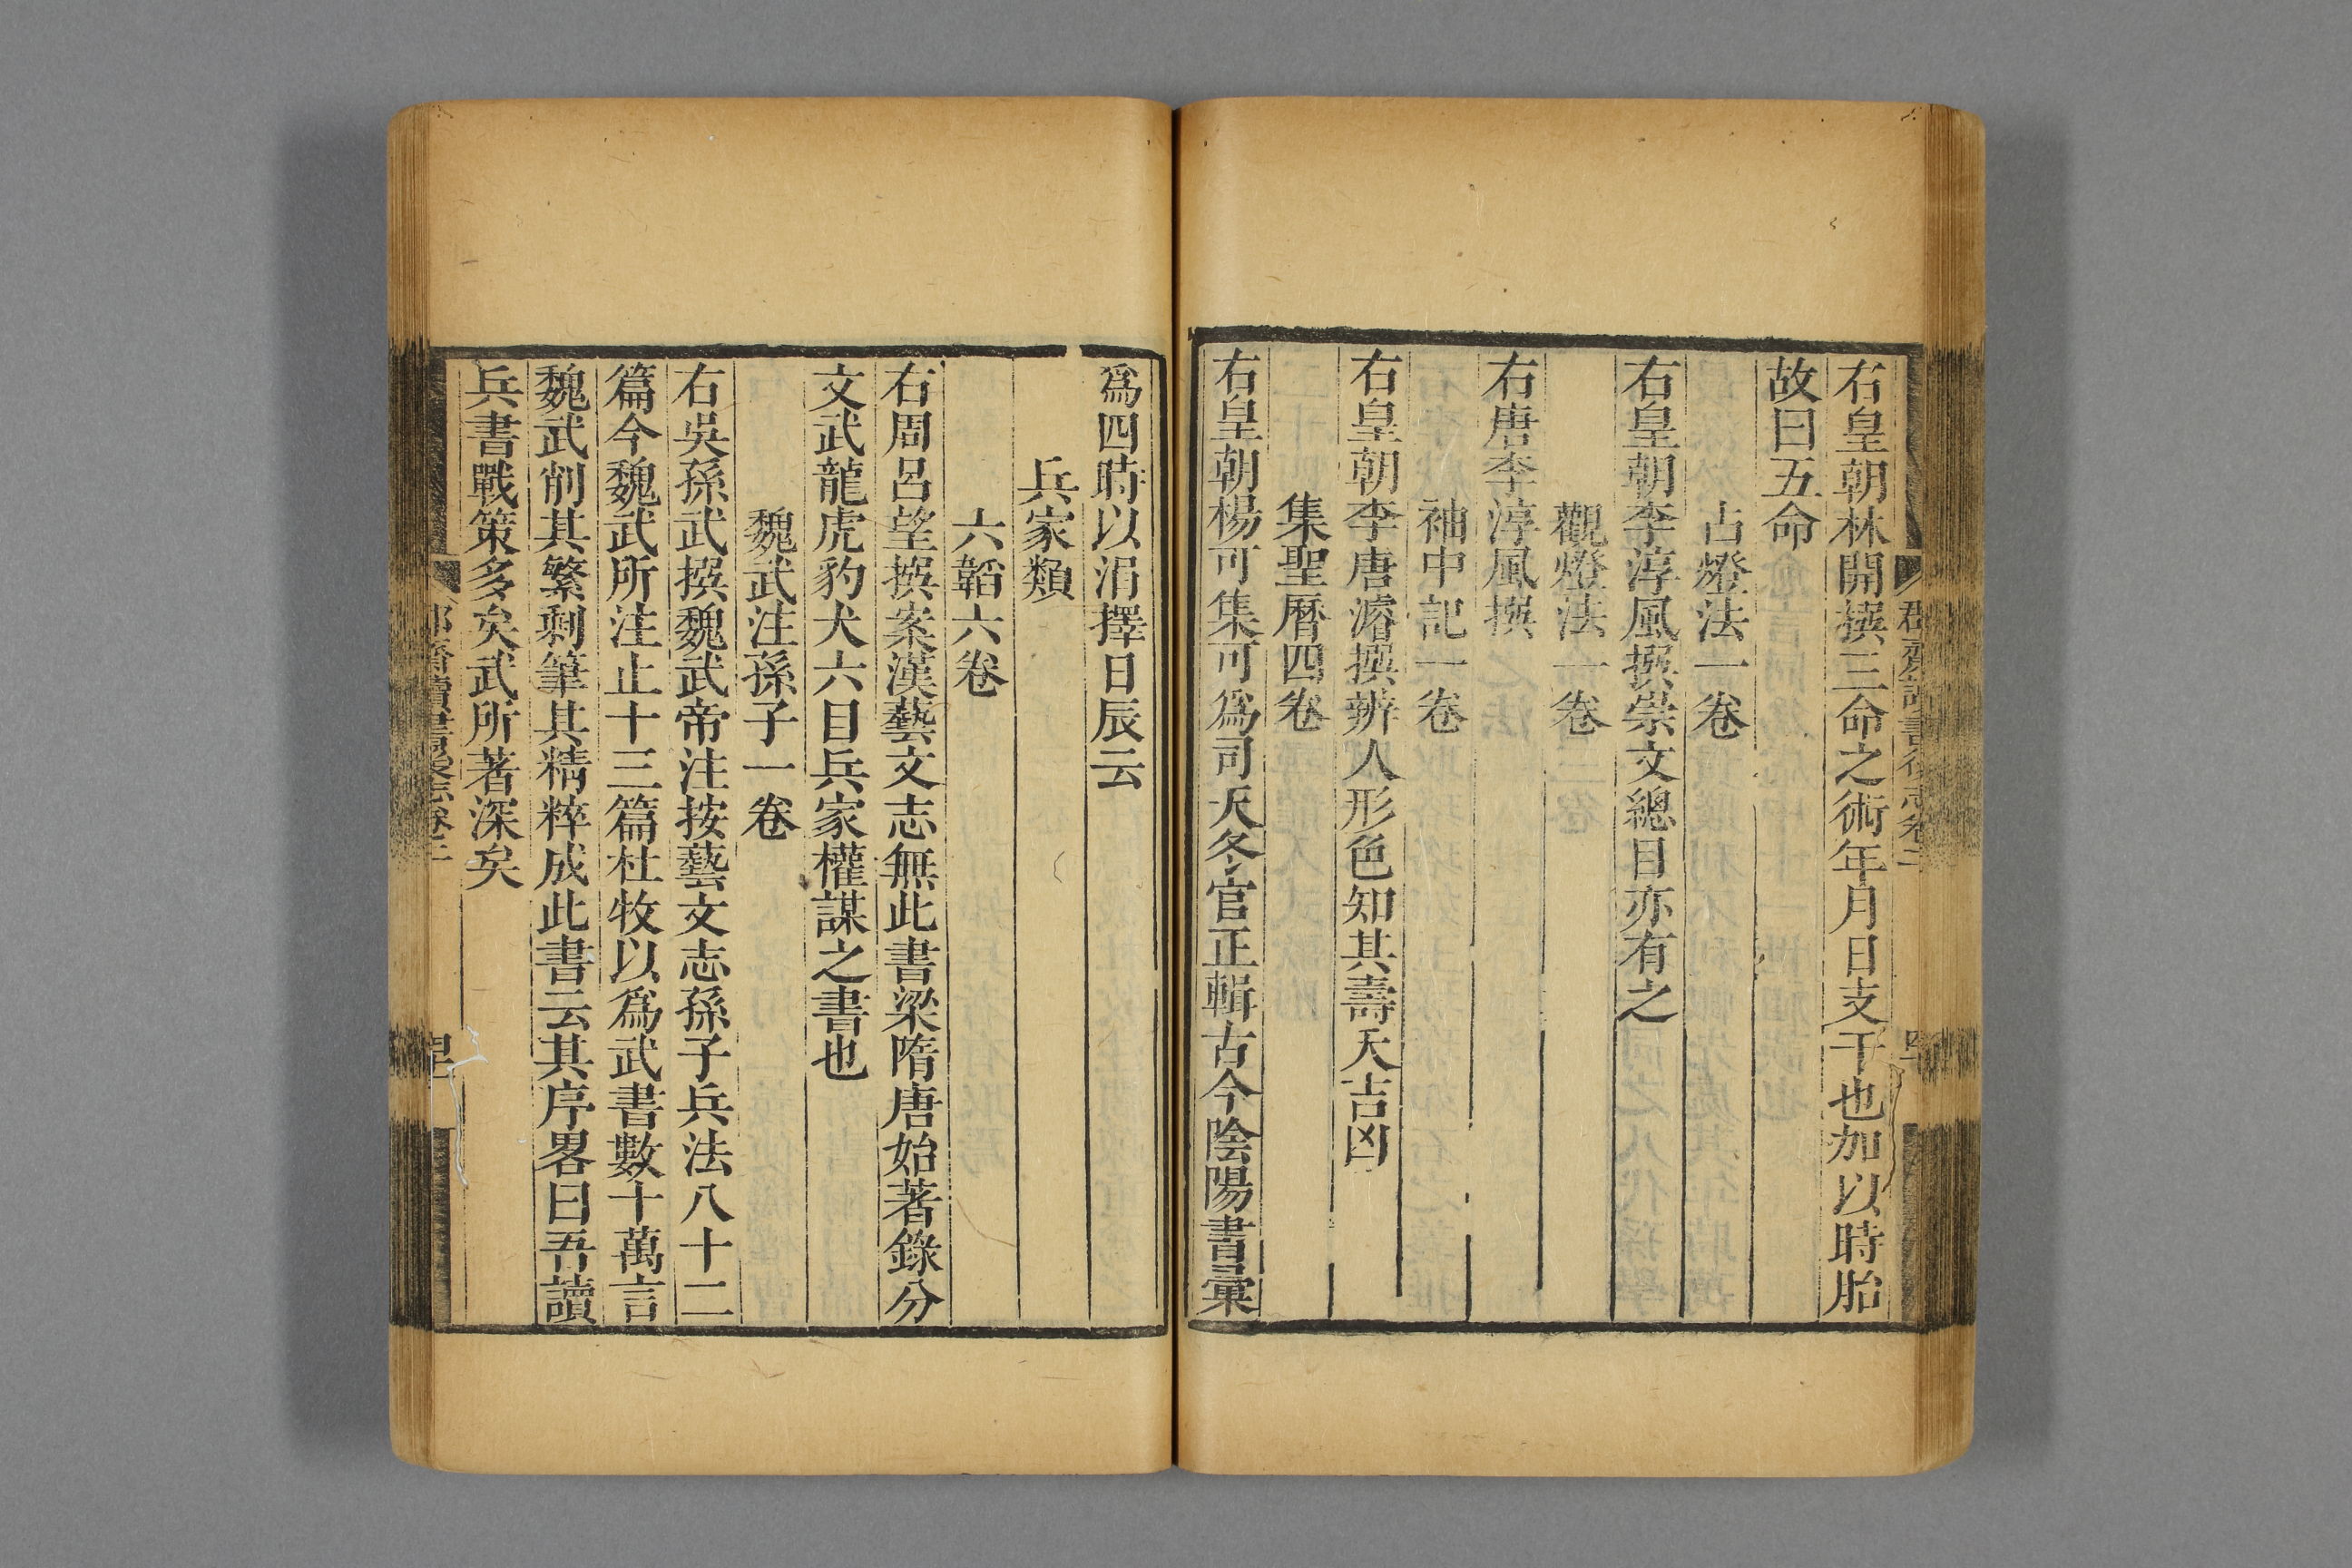 右皇朝林開撰三命之術年月日支干也加以時胎
故曰五命
占燈法一卷
右皇朝李淳風撰崇文總目亦有之
觀燈法一卷
右唐李淳風撰
袖中記一卷
右皇朝李唐濬撰辨人形色知其壽夭吉凶
集聖曆四卷
右皇朝楊可集可爲司天冬官正輯古今陰陽書彙
爲四時以涓擇日辰云
兵家類
六韜六卷
右周呂望撰案漢藝文志無此書梁隋唐始著錄分
文武龍虎豹犬六目兵家權謀之書也
魏武注孫子一卷
右吳孫武撰魏武帝注按藝文志孫子兵法八十二
篇今魏武所注止十三篇杜牧以爲武書數十萬言
魏武削其繁剩筆其精粹成此書云其序畧曰吾讀
兵書戰策多矣武所著深矣